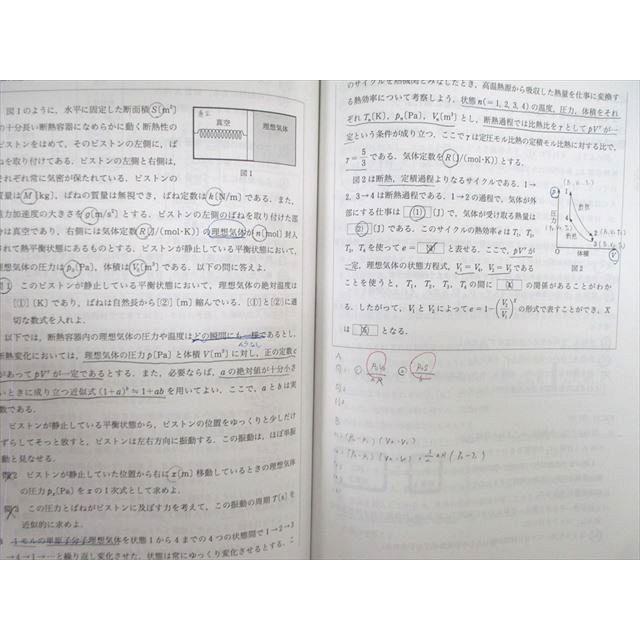 図1のように，水平に固定した断面積S〔m²〕
の十分長い断熱容器になめらかに動く断熱性の
ピストンをはめて，そのピストンの左側に，ば
ねを取り付けてある。ピストンの左側と右側は，
それぞれ常に気密が保たれている。ピストンの
質量はM〔kg〕，ばねの質量は無視でき，ばね定数はk〔N/m〕である。また，
重力加速度の大きさをg〔m/s²〕とする。ピストンの左側のばねを取り付けた部
は真空であり，右側には気体定数R〔J/(mol・K)〕の理想気体がn〔mol〕封入
されて熱平衡状態にあるものとする。ピストンが静止している平衡状態において，
理想気体の圧力はp₀〔Pa〕，体積はV₀〔m³〕である。以下の問に答えよ。
真空
理想気体
図1
問1 このピストンが静止している平衡状態において，理想気体の絶対温度は
〔①〕〔K〕であり，ばねは自然長から〔②〕〔m〕縮んでいる。〔①〕と〔②〕に適
切な数式を入れよ。
以下では，断熱容器内の理想気体の圧力や温度はどの瞬間にも一様であるとし，
断熱変化においては，理想気体の圧力p〔Pa〕と体積V〔m³〕に対し，正の定数c
があってpVᶜが一定である。また，必要ならば，aの絶対値が十分小さ
いときに成り立つ近似式(1+a)ᵇ≒1+abを用いてよい。ここで，aとbは実
数である。
ピストンが静止している平衡状態から，ピストンの位置をゆっくりと少しだけ
ずらしてそっと放すと，ピストンは左右方向に振動する。この振動は，ほぼ単振
動
問2 ピストンが静止していた位置から右はx〔m〕移動しているときの理想気体
の圧力pₓ〔Pa〕をxの1次式として求めよ。
問3 この圧力とばねがピストンに及ぼす力を考えて，この振動の周期T〔s〕を
近似的に求めよ。
1モルの単原子分子理想気体を状態1から4までの4つの状態間で1→2→3
→4→1→…と繰り返し変化させた。状態は常にゆっくり変化させるとする。こ
のサイクルを熱機関とみなしたとき，高温熱源から吸収した熱量を仕事に変換す
る熱効率について考察しよう。状態n(=1,2,3,4)の温度，圧力，体積をそれ
ぞれTₙ〔K〕，pₙ〔Pa〕，Vₙ〔m³〕とし，断熱過程では比熱比をγとしてpVᵞが一
定という条件が成り立つ。ここでγは定圧モル比熱の定積モル比熱に対する比で，
γ=5/3である。気体定数をR〔J/(mol・K)〕とする。
図2は断熱，定積過程よりなるサイクルである。1→
2，3→4は断熱過程である。1→2の過程で，気体が外
部にする仕事は(1)〔J〕で，気体が受け取る熱量は
(2)〔J〕である。このサイクルの熱効率eはT₁，T₂，
T₃，T₄を使ってe=と表せる。ここで，pVᵞが
一定，理想気体の状態方程式，V₁=V₄，V₂=V₃である
ことを使うと，T₁，T₂，T₃，T₄の間にの関係があることがわか
る。したがって，V₁とV₂によってe=1-(V₁/V₂)ˣの形式で表すことができ，X
はとなる。
圧力
断熱
断熱
体積
図2